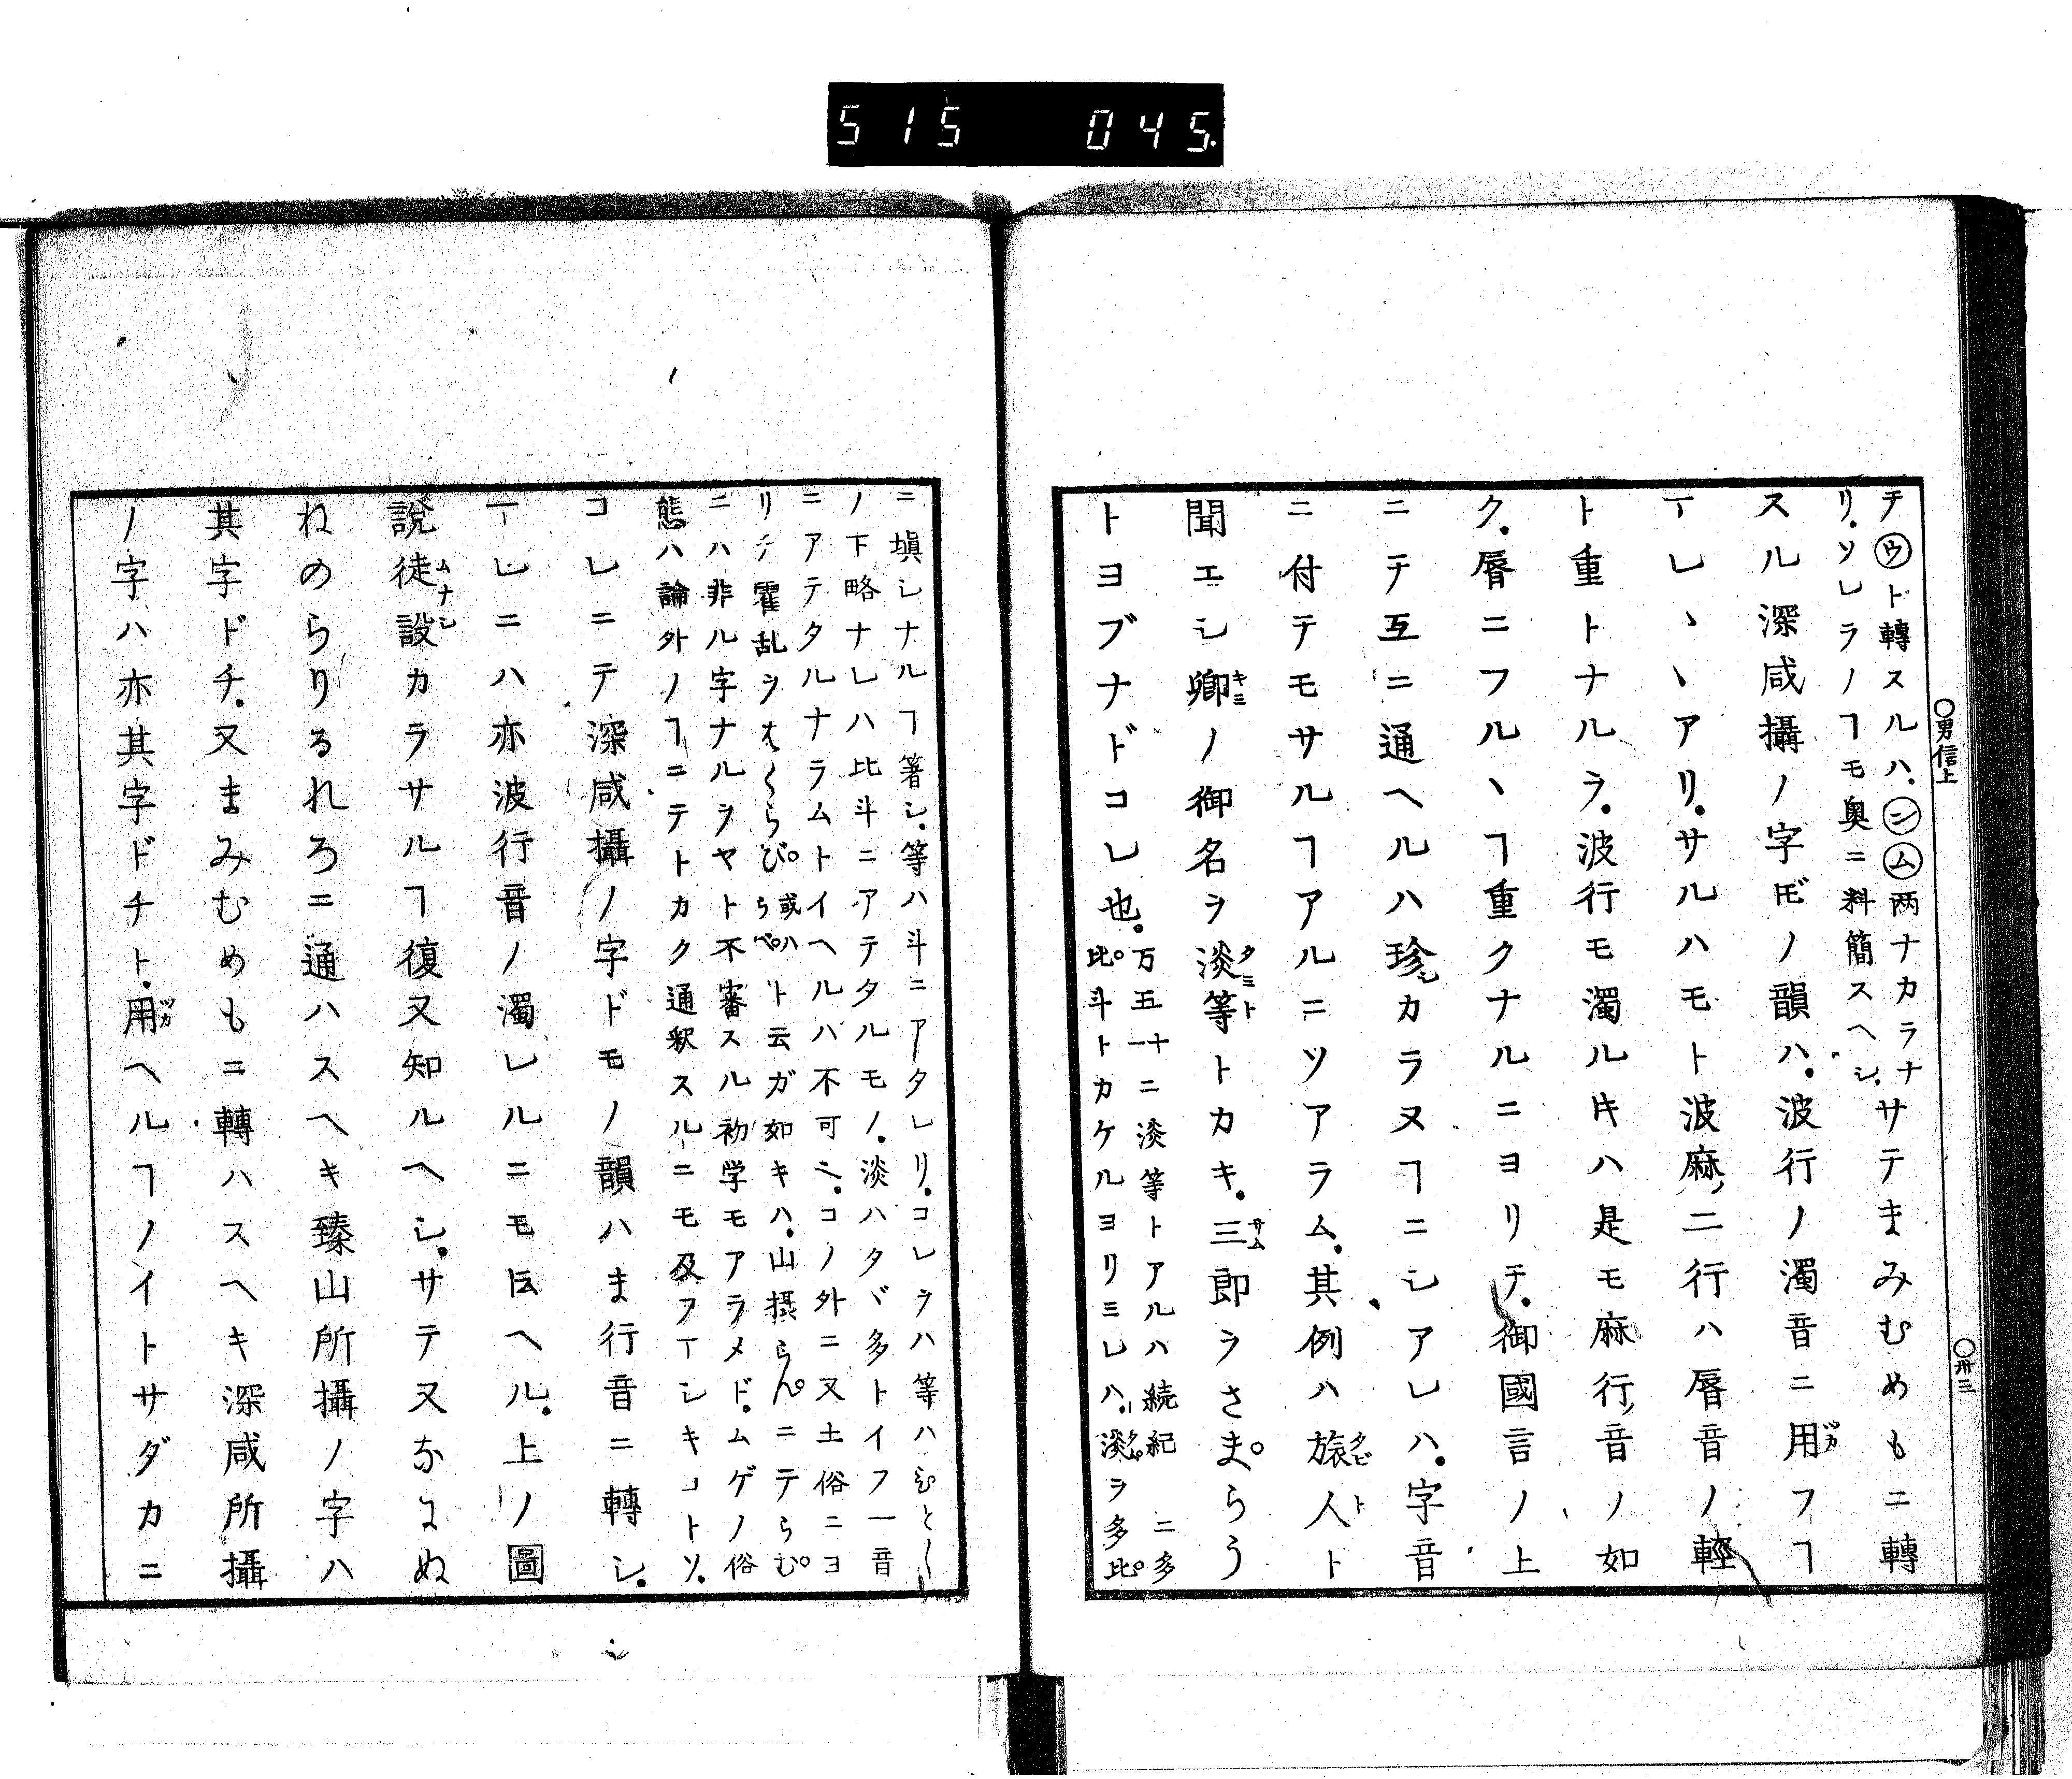 515 045.
○男信上
○卅三
チ㋒ト轉スルハ.㋛㋰両ナカラナ
リ.ソレラノヿモ奥ニ料簡スヘシ.
サテまみむめもニ轉
スル深咸攝ノ字𪜈ノ韻ハ.波行ノ濁音ニ用フヿ
ツカ
𠀋レヽヽアリ.サルハモト波麻ノ二行ハ脣音ノ輕
ト重トナルラ.波行モ濁ル𪜈ハ是モ麻行ノ音ノ如
ク.脣ニフルヽヿ重クナルニヨリテ.御國言ノ上
ニテ互ニ通ヘルハ珍シカラヌヿニシアレハ.字音
ニ付テモサルヿアルニツアラム.其例ハ旅人ト
タビト
聞エシ卿ノ御名ヲ淡等トカキ.三郎ヲさま゜らう
キミ タミト サム
トヨブナドコレ也.
万五十一ニ淡等トアルハ続紀ニ多
比゜斗トカケルヨリミレハ.淡ヲ多比゜
ニ塡シナルヿ箸シ.等ハ斗ニアタレリ.コレラハ等ハひと〱
ノ下略ナレハ比斗ニアテタルモノ.淡ハタヾ多トイフ一音
ニアテタルナラムトイヘルハ不可シ.コノ外ニ又土俗ニヨ
リテ霍乱ヲはくらび゜或ハらべ゜ト云ガ如キハ.山摂らん゜ニテらむ゜
ニハ非ル字ナルヲヤト不審スル初学モアラメド.ムゲノ俗
態ハ論外ノヿニテトカク通釈スルニモ及フマシキコトソ.
コレニテ深咸攝ノ字ドモノ韻ハま行音ニ轉シ.
𠀋レニハ亦波行音ノ濁レルニモ伝ヘル.上ノ圖
説徒設カラサルヿ復又知ルヘシ.サテ又なにぬ
ムナシ
ねのらりるれろニ通ハスヘキ臻山所攝ノ字ハ
其字ドチ.又まみむめもニ轉ハスヘキ深咸所攝
ノ字ハ亦其字ドチト.用ヘルヿノイトサダカニ
ツカ